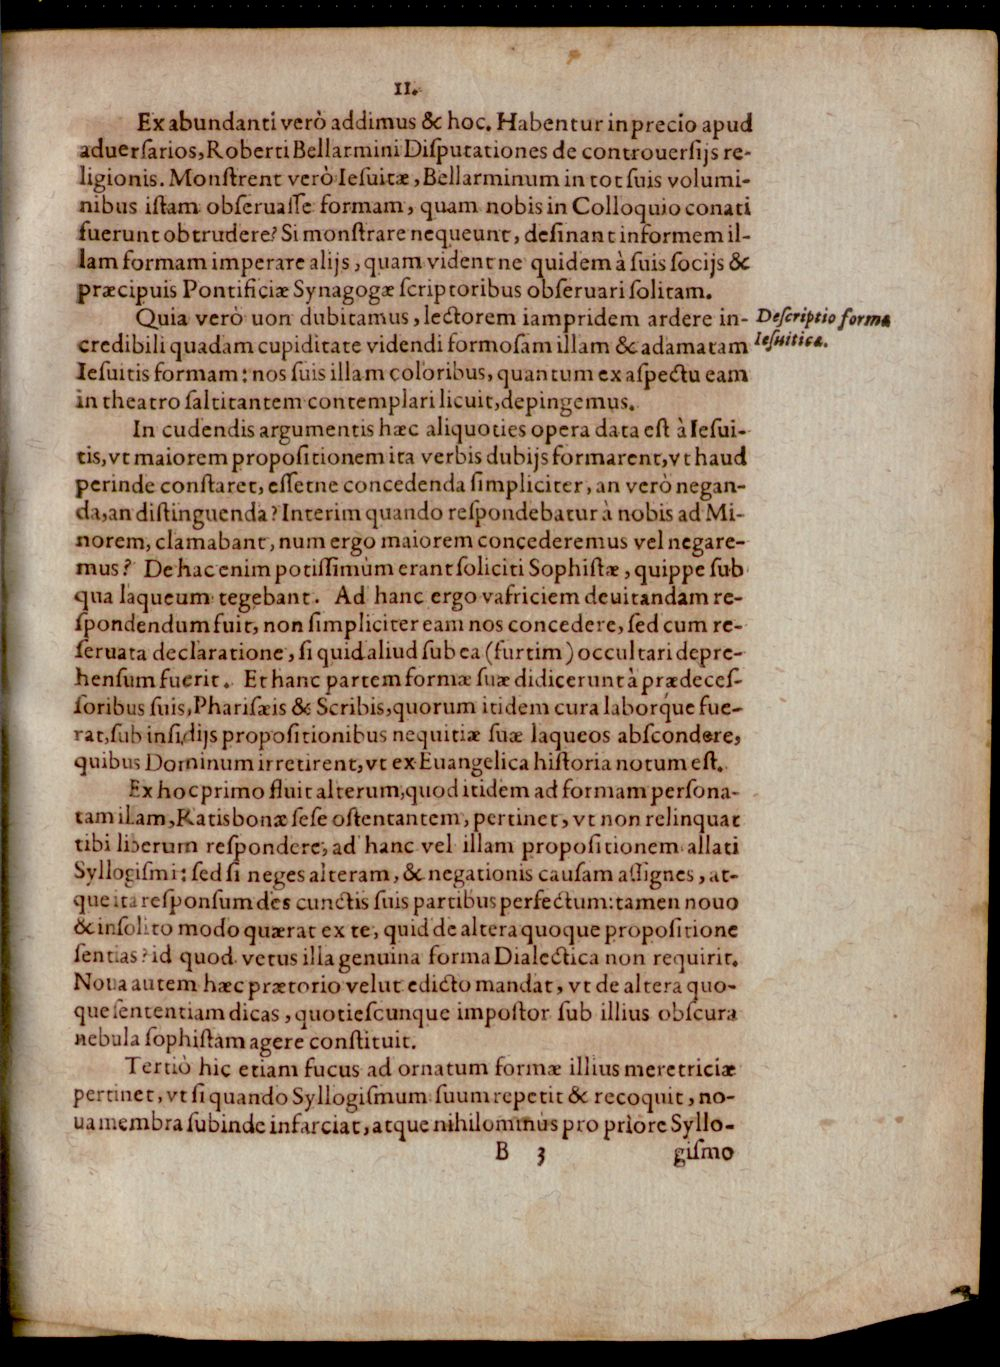 11.
Ex abundanti verò addimus & hoc. Habentur in precio apud
aduersarios, Roberti Bellarmini Disputationes de controuersijs re-
ligionis. Monstrent verò Iesuitæ, Bellarminum in tot suis volumi-
nibus istam obseruasse formam, quam nobis in Colloquio conati
fuerunt obtrudere? Si monstrare nequeunt, desinant informem il-
lam formam imperare alijs, quam vident ne quidem à suis socijs &
præcipuis Pontificiæ Synagogæ scriptoribus obseruari solitam.
Quia verò uon dubitamus, lectorem iampridem ardere in-
credibili quadam cupiditate videndi formosam illam & adamatam
Iesuitis formam: nos suis illam coloribus, quantum ex aspectu eam
in theatro saltitantem contemplari licuit, depingemus.
Descriptio formæ
Iesuiticæ.
In cudendis argumentis hæc aliquoties opera data est à Iesui-
tis, vt maiorem propositionem ita verbis dubijs formarent, vt haud
perinde constaret, essetne concedenda simpliciter, an verò negan-
da, an distinguenda? Interim quando respondebatur à nobis ad Mi-
norem, clamabant, num ergo maiorem concederemus vel negare-
mus? De hac enim potissimùm erant soliciti Sophistæ, quippe sub
qua laqueum tegebant. Ad hanc ergo vafriciem deuitandam re-
spondendum fuit, non simpliciter eam nos concedere, sed cum re-
seruata declaratione, si quid aliud sub ea (furtim) occultari depre-
hensum fuerit. Et hanc partem formæ suæ didicerunt à prædeces-
soribus suis, Pharisæis & Scribis, quorum itidem cura labórque fue-
rat, sub insidijs propositionibus nequitiæ suæ laqueos abscondere,
quibus Dominum irretirent, vt ex Euangelica historia notum est.
Ex hoc primo fluit alterum, quod itidem ad formam persona-
tam illam, Ratisbonæ sese ostentantem, pertinet, vt non relinquat
tibi liberum respondere, ad hanc vel illam propositionem allati
Syllogismi: sed si neges alteram, & negationis causam assignes, at-
que ita responsum des cunctis suis partibus perfectum: tamen nouo
& insolito modo quærat ex te, quid de altera quoque propositione
sentias? id quod vetus illa genuina forma Dialectica non requirit.
Noua autem hæc prætorio velut edicto mandat, vt de altera quo-
que sententiam dicas, quotiescunque impostor sub illius obscura
nebula sophistam agere constituit.
Tertiò hic etiam fucus ad ornatum formæ illius meretriciæ
pertinet, vt si quando Syllogismum suum repetit & recoquit, no-
ua membra subinde infarciat, atque nihilominus pro priore Syllo-
B 3 gismo